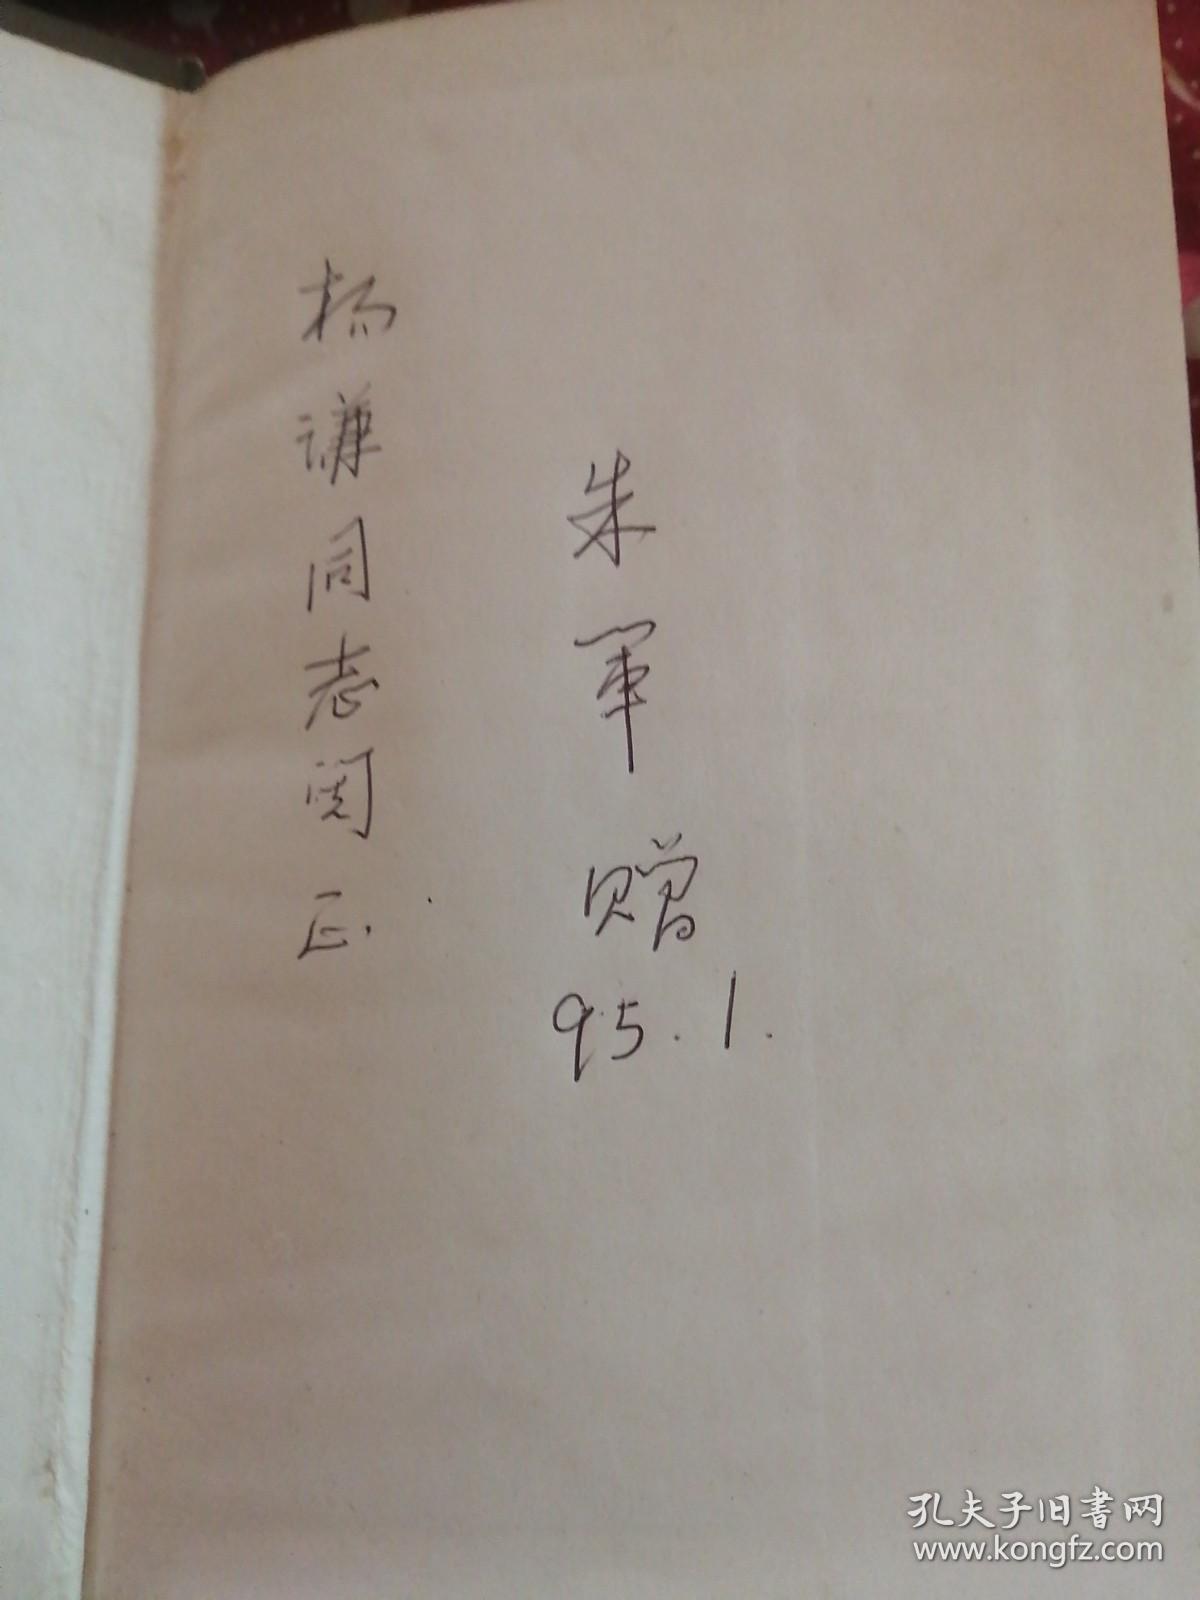 杨谦同志阅正.
朱军赠
95.1.
孔夫子旧书网
www.kongfz.com